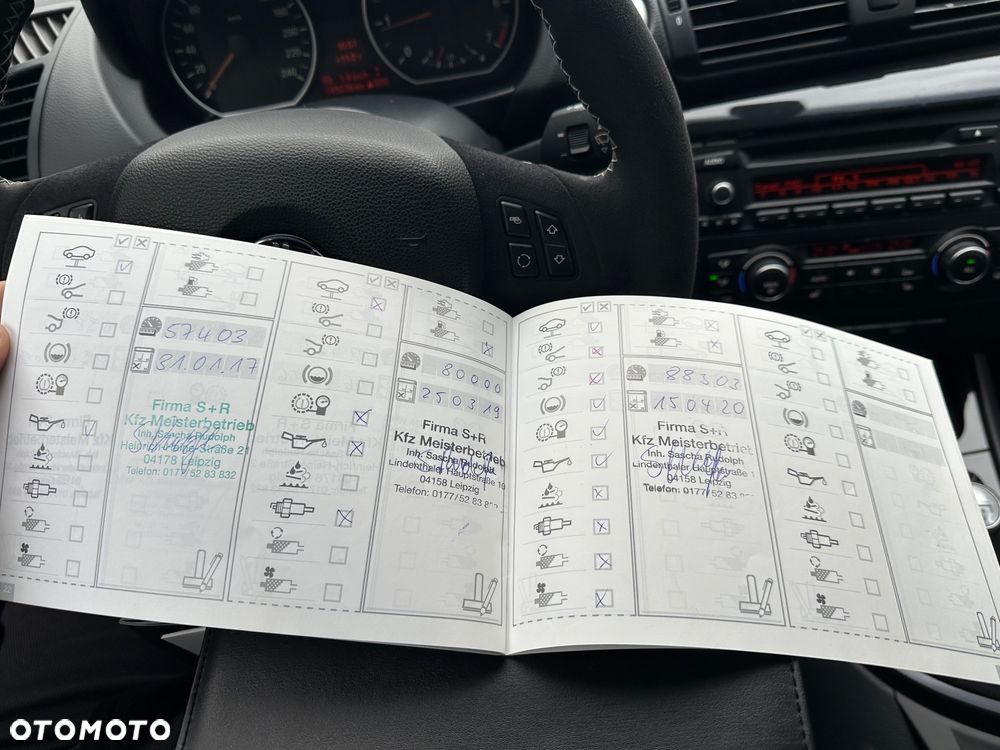 57403
31.01.17
Firma S+R
Kfz Meisterbetrieb
Inh. Sascha Rudolph
04178 Leipzig
Telefon: 0177/52 83 832
80000
25 03 19
Firma S+R
Kfz Meisterbetrieb
Inh. Sascha Rudolph
Lindenthaler Hauptstraße 10
04158 Leipzig
Telefon: 0177/52 83
88303
15 04 20
Firma S+R
Kfz Meisterbetrieb
Inh. Sascha Rudolph
Lindenthaler Hauptstraße
04158 Leipzig
Telefon: 0177/52 83
OTOMOTO